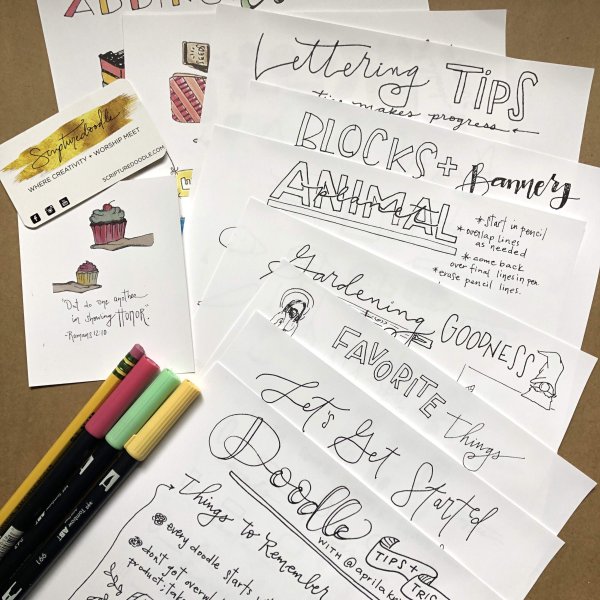 ADDING
SEEDS
Lettering TIPS
time makes progress
Scripturedoodle
WHERE CREATIVITY + WORSHIP MEET
SCRIPTUREDOODLE.COM
BLOCKS + Banners
ANIMAL
alphabet
* start in pencil
* overlap lines
as needed
* come back
over final lines in pen
* erase pencil lines.
"Out do one another
in showing HONOR"
-Romans 12:10
Gardening GOODNESS
FAVORITE things
Let's Get Started
Doodle
WITH @aprilak
TIPS +
TRIS
Things to Remember
every doodle starts w
don't get overwh
product; tak
Tombow ABT
991